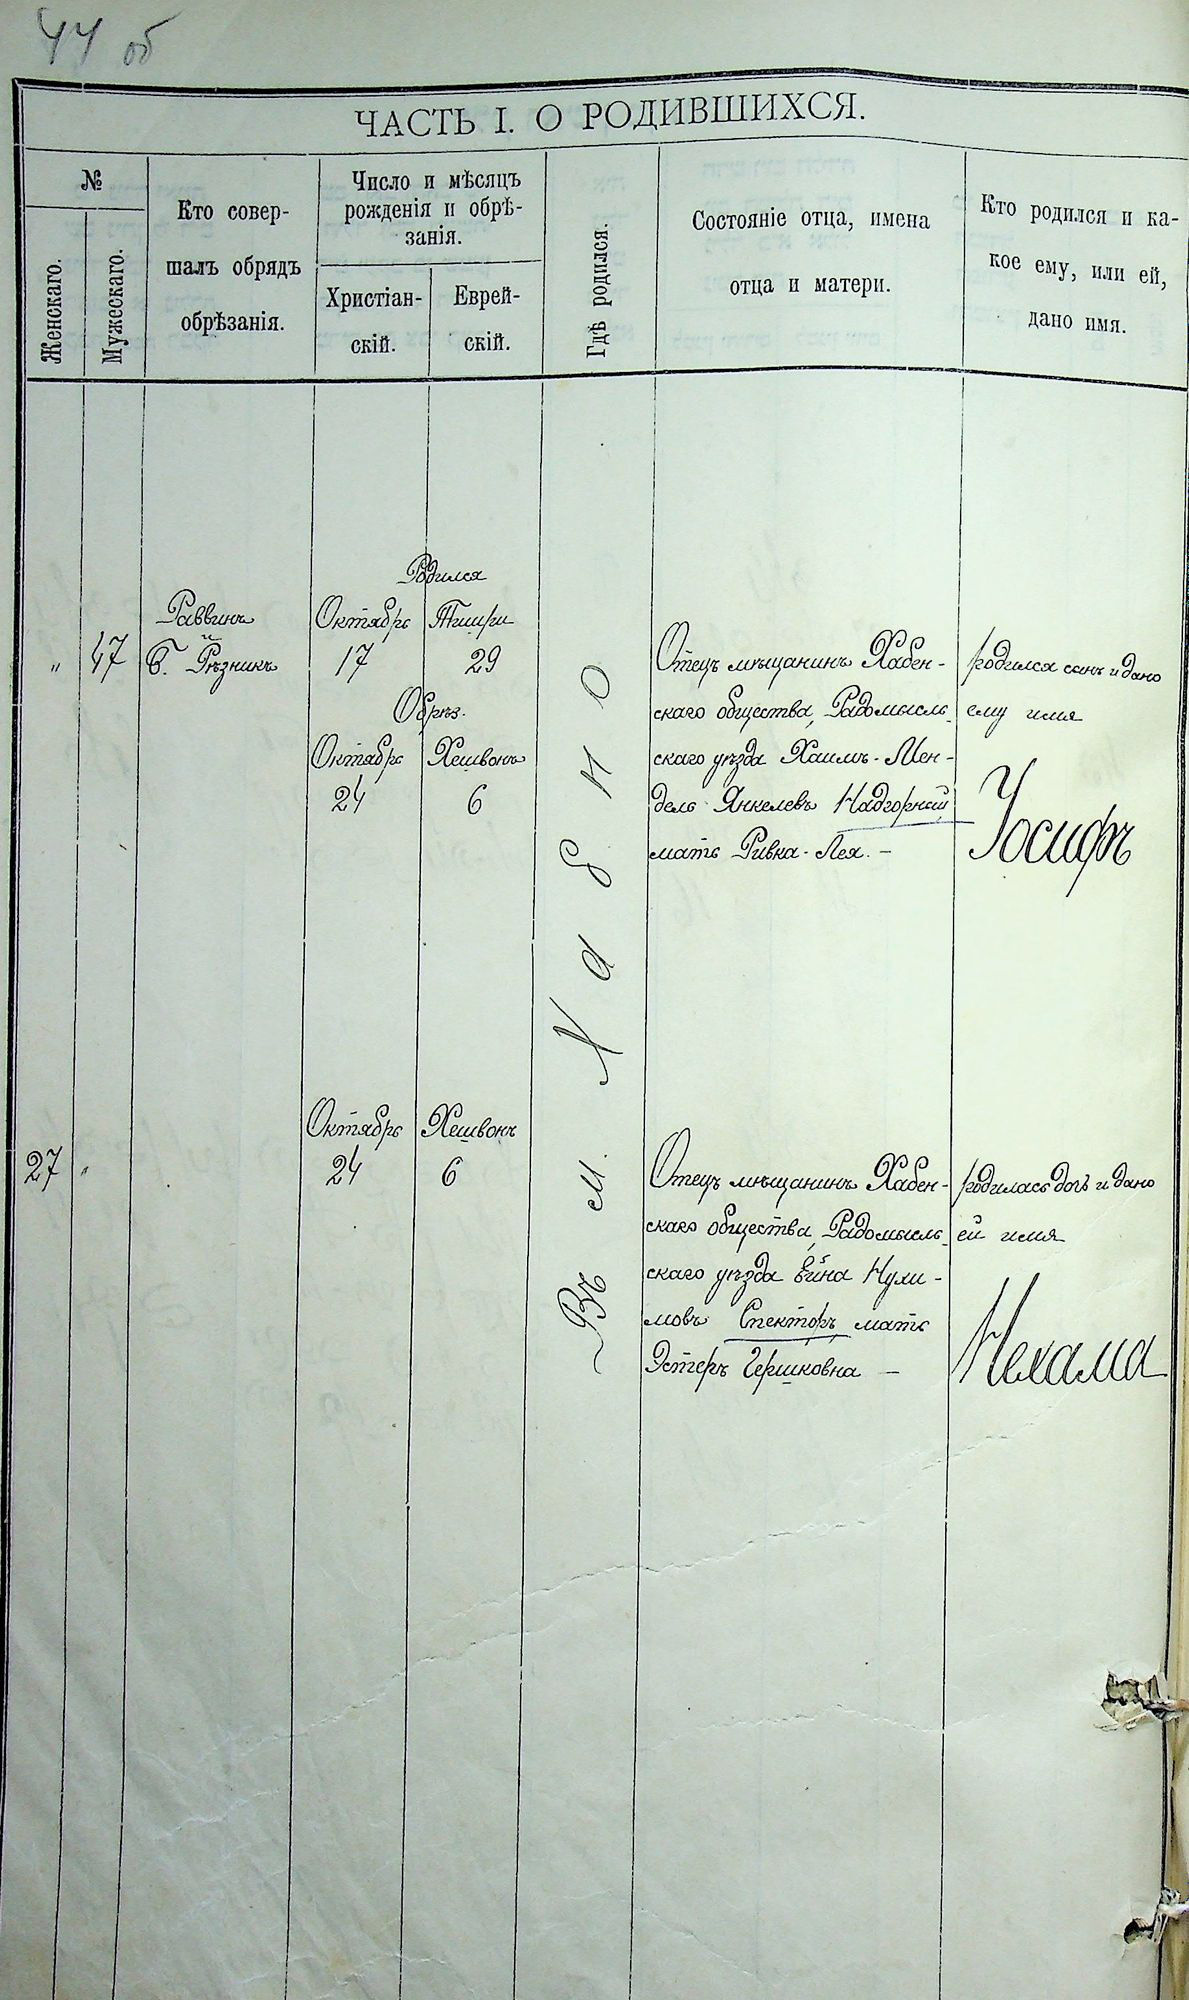 44 об
ЧАСТЬ I. О РОДИВШИХСЯ.
№
Женскаго.
Мужескаго.
Кто совер-
шалъ обрядъ
обрѣзанія.
Число и мѣсяцъ
рожденія и обрѣ-
занія.
Христіан-
скій.
Еврей-
скій.
Гдѣ родился.
Состояніе отца, имена
отца и матери.
Кто родился и ка-
кое ему, или ей,
дано имя.
Родился
Раввинъ Октябрь Тишри
" 47 Б. Рѣзникъ 17 29
Обрѣз.
Октябрь Хешвонъ
24 6
Въ м. Хабно
Отецъ мѣщанинъ Хабен-
скаго общества, Радомысль-
скаго уѣзда Хаимъ-Мен-
дель Янкелевъ Надгорный
мать Ривка-Лея. –
родился сынъ и дано
ему имя
Іосифъ
Октябрь Хешвонъ
27 " 24 6
Отецъ мѣщанинъ Хабен-
скаго общества, Радомысль-
скаго уѣзда Нухи-
мовъ Спекторъ, мать
Эстеръ Гершковна –
родилась дочь и дано
ей имя
Нехама